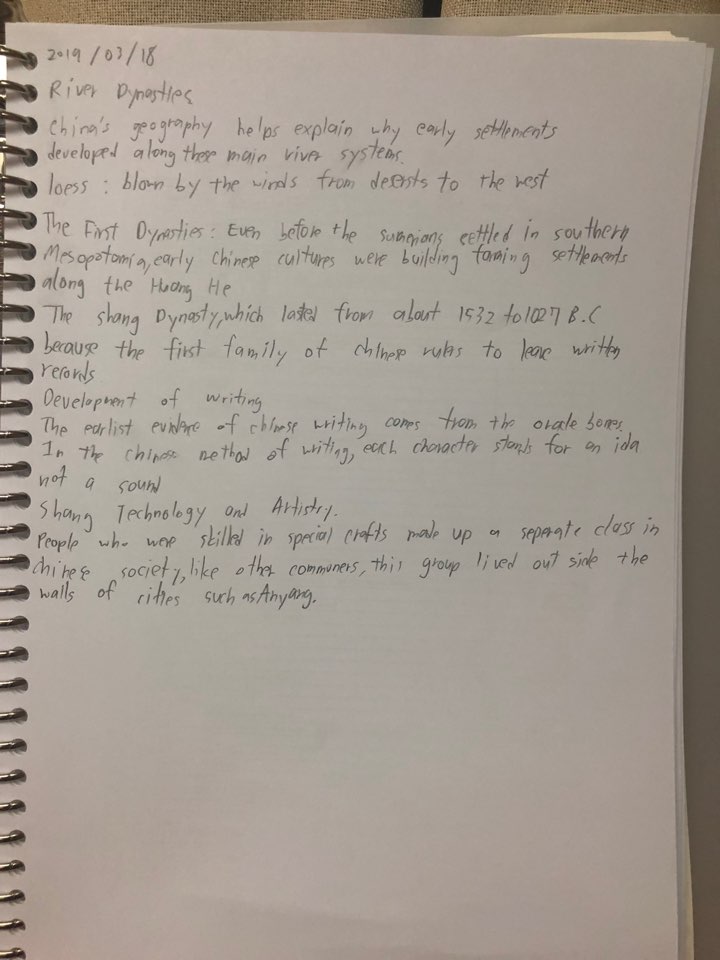 2019/03/18
River Dynasties
China's geography helps explain why early settlements
developed along these main river systems.
loess : blown by the winds from deserts to the west
The First Dynasties : Even before the sumerians settled in southern
Mesopotamia, early Chinese cultures were building faming settlements
along the Huang He
The shang Dynasty, which lasted from about 1532 to 1027 B.C
because the first family of chinese rules to leave written
records
Development of writing
The earlist evidence of chinese writing comes from the oracle bones.
In the chinese method of writing, each character stands for an ida
not a sound
Shang Technology and Artistry.
People who were skilled in special crafts made up a seperate class in
chinese society, like other communers, this group lived out side the
walls of cities such as Anyang.